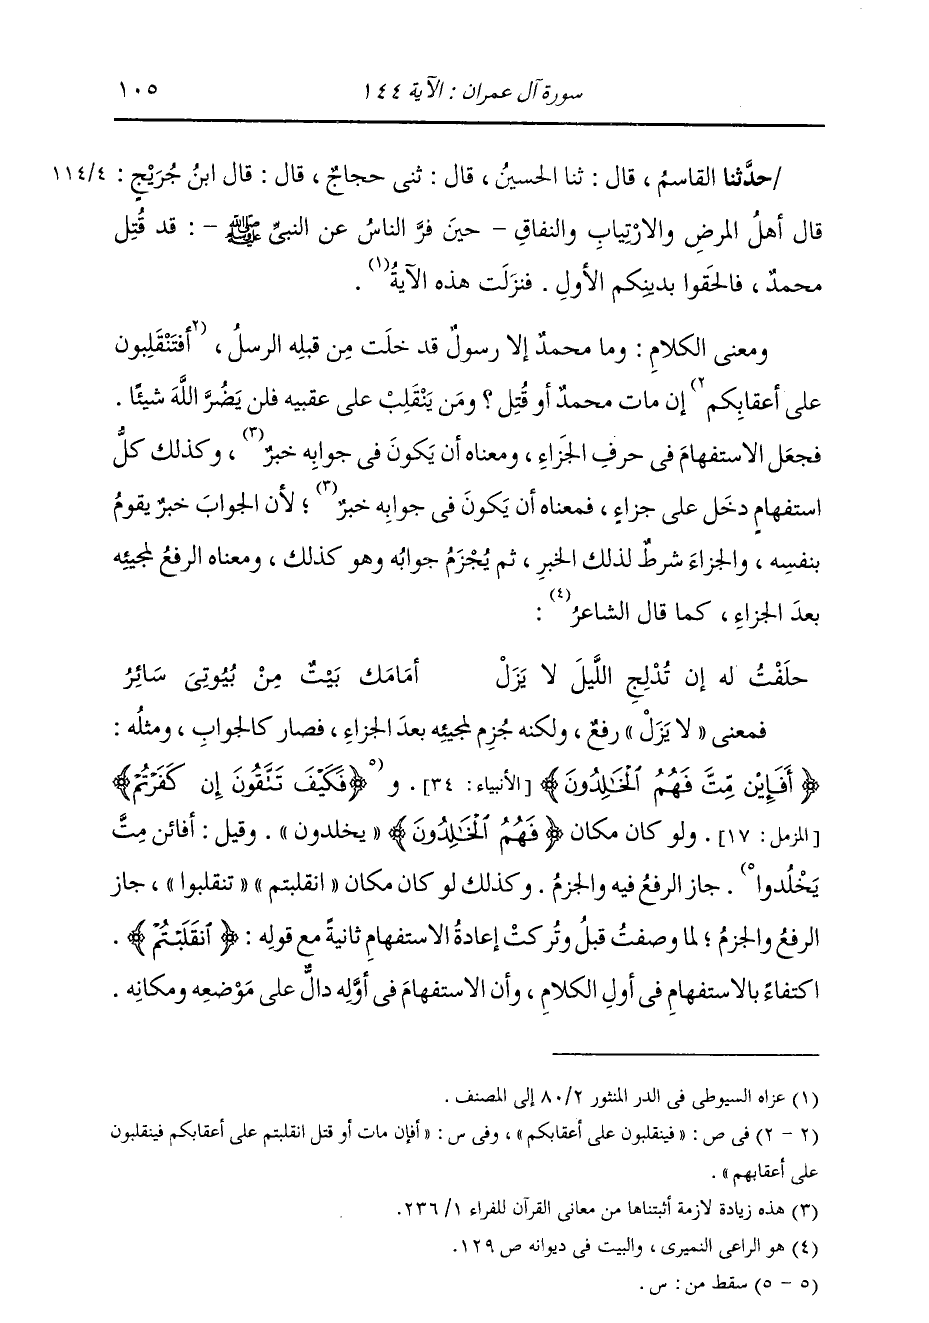 سورة آل عمران : الآية ١٤٤ ١٠٥
/حدَّثنا القاسمُ ، قال : ثنا الحسينُ ، قال : ثنى حجاجٌ ، قال : قال ابنُ جُرَيْجٍ : ١١٤/٤
قال أهلُ المرضِ والارْتِيابِ والنفاقِ - حينَ فرَّ الناسُ عن النبىِّ ﷺ - : قد قُتِل
محمدٌ ، فالحَقوا بدينِكم الأولِ . فنزَلَت هذه الآيةُ(١) .
ومعنى الكلامِ : وما محمدٌ إلا رسولٌ قد خلَت مِن قبلِه الرسلُ ، (٢أفتَنْقَلِبون
على أعقابِكم٢) إن مات محمدٌ أو قُتِل ؟ ومَن يَنْقَلِبْ على عقبيه فلن يَضُرَّ اللَّهَ شيئًا .
فجعَل الاستفهامَ فى حرفِ الجَزاءِ ، ومعناه أن يَكونَ فى جوابِه خبرٌ(٣) ، وكذلك كلُّ
استفهامٍ دخَل على جزاءٍ ، فمعناه أن يَكونَ فى جوابِه خبرٌ(٣) ؛ لأن الجوابَ خبرٌ يقومُ
بنفسِه ، والجزاءَ شرطٌ لذلك الخبرِ ، ثم يُجْزَمُ جوابُه وهو كذلك ، ومعناه الرفعُ لمجيئِه
بعدَ الجزاءِ ، كما قال الشاعرُ(٤) :
حلَفْتُ له إن تُدْلِجِ اللَّيلَ لا يَزَلْ أمَامَك بَيْتٌ مِنْ بُيُوتِىَ سَائِرُ
فمعنى « لا يَزَلْ » رفعٌ ، ولكنه جُزِم لمجيئِه بعدَ الجزاءِ ، فصار كالجوابِ ، ومثلُه :
﴿ أَفَإِيْن مِّتَّ فَهُمُ ٱلْخَٰلِدُونَ ﴾ [الأنبياء: ٣٤] . و (٥﴿فَكَيْفَ تَتَّقُونَ إِن كَفَرْتُمْ﴾
[المزمل: ١٧] . ولو كان مكان ﴿ فَهُمُ ٱلْخَٰلِدُونَ ﴾ « يخلدون » . وقيل : أفائن مِتَّ
يَخْلُدوا٥) . جاز الرفعُ فيه والجزمُ . وكذلك لو كان مكان « انقلبتم » « تنقلبوا » ، جاز
الرفعُ والجزمُ ؛ لما وصفتُ قبلُ وتُركتْ إعادةُ الاستفهامِ ثانيةً مع قولِه : ﴿ ٱنقَلَبْتُمْ ﴾ .
اكتفاءً بالاستفهامِ فى أولِ الكلامِ ، وأن الاستفهامَ فى أوَّلِه دالٌّ على مَوْضعِه ومكانِه .
(١) عزاه السيوطى فى الدر المنثور ٨٠/٢ إلى المصنف .
(٢ - ٢) فى ص : « فينقلبون على أعقابكم » ، وفى س : « أفإن مات أو قتل انقلبتم على أعقابكم فينقلبون
على أعقابهم » .
(٣) هذه زيادة لازمة أثبتناها من معانى القرآن للفراء ١/ ٢٣٦.
(٤) هو الراعى النميرى ، والبيت فى ديوانه ص ١٢٩.
(٥ - ٥) سقط من : س .